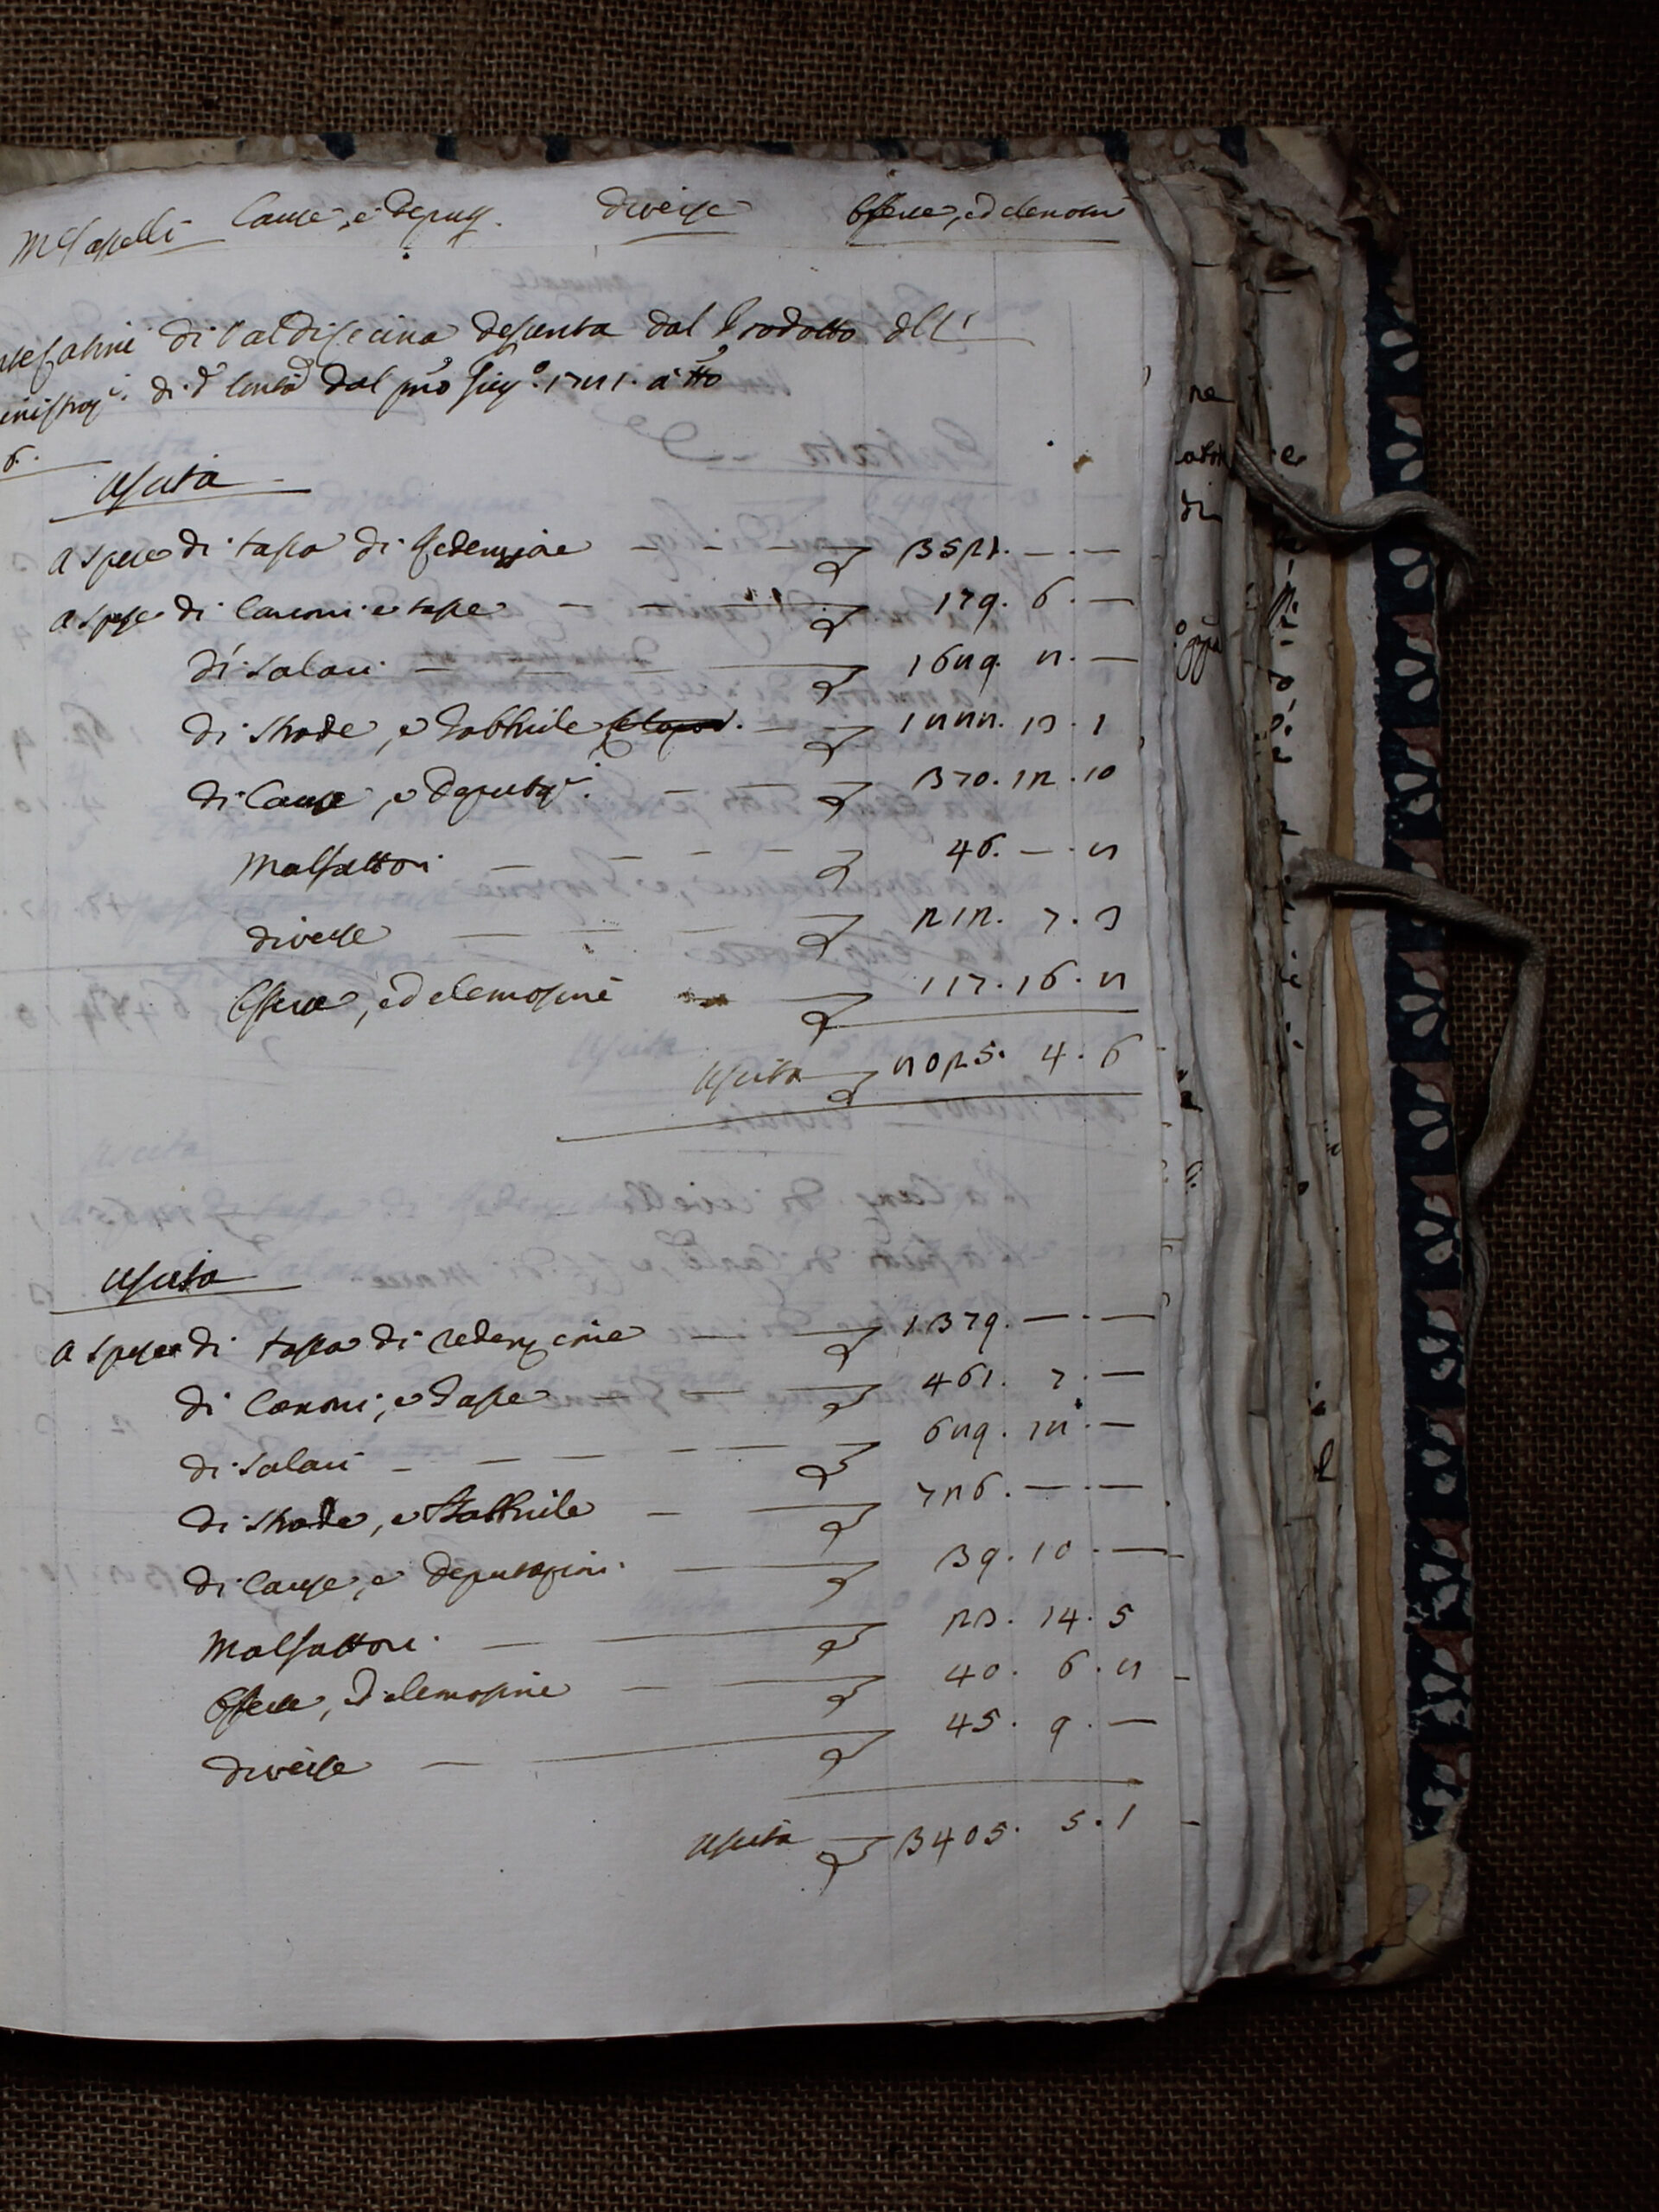 Cause, e Deputaz. Diverse Offerte, ed elemosin
di Valdicecina desunta dal Prodotto dell'
di d.ª Comtà dal pmo Giug.º 1781. a tto
Uscita
A spese di tassa di Redenzione — — — £ 3521. — . —
A spese di Canoni e tasse — — £ 179. 6. —
di Salari — — £ 1689. 8. —
di Strade, e Fabbriche — £ 1888. 13. 1
di Cause, e Deputaz.i — £ 370. 12. 10
Malfattori — — — — £ 46. — . 8
diverse — — — £ 212. 7. 3
Offerte, ed elemosine — £ 117. 16. 8
Uscita £ 8025. 4. 6
Uscita
A spese di tassa di redenzione — — £ 1379. — . —
di Canoni, e Tasse — — £ 461. 7. —
di Salari — — — — £ 689. 18. —
di Strade, e Fabbriche — — £ 726. — . —
di Cause, e deputazioni — £ 39. 10. —
Malfattori — — £ 23. 14. 5
Offerte, ed elemosine — — £ 40. 6. 8
Diverse — — £ 45. 9. —
Uscita — £ 3405. 5. 1